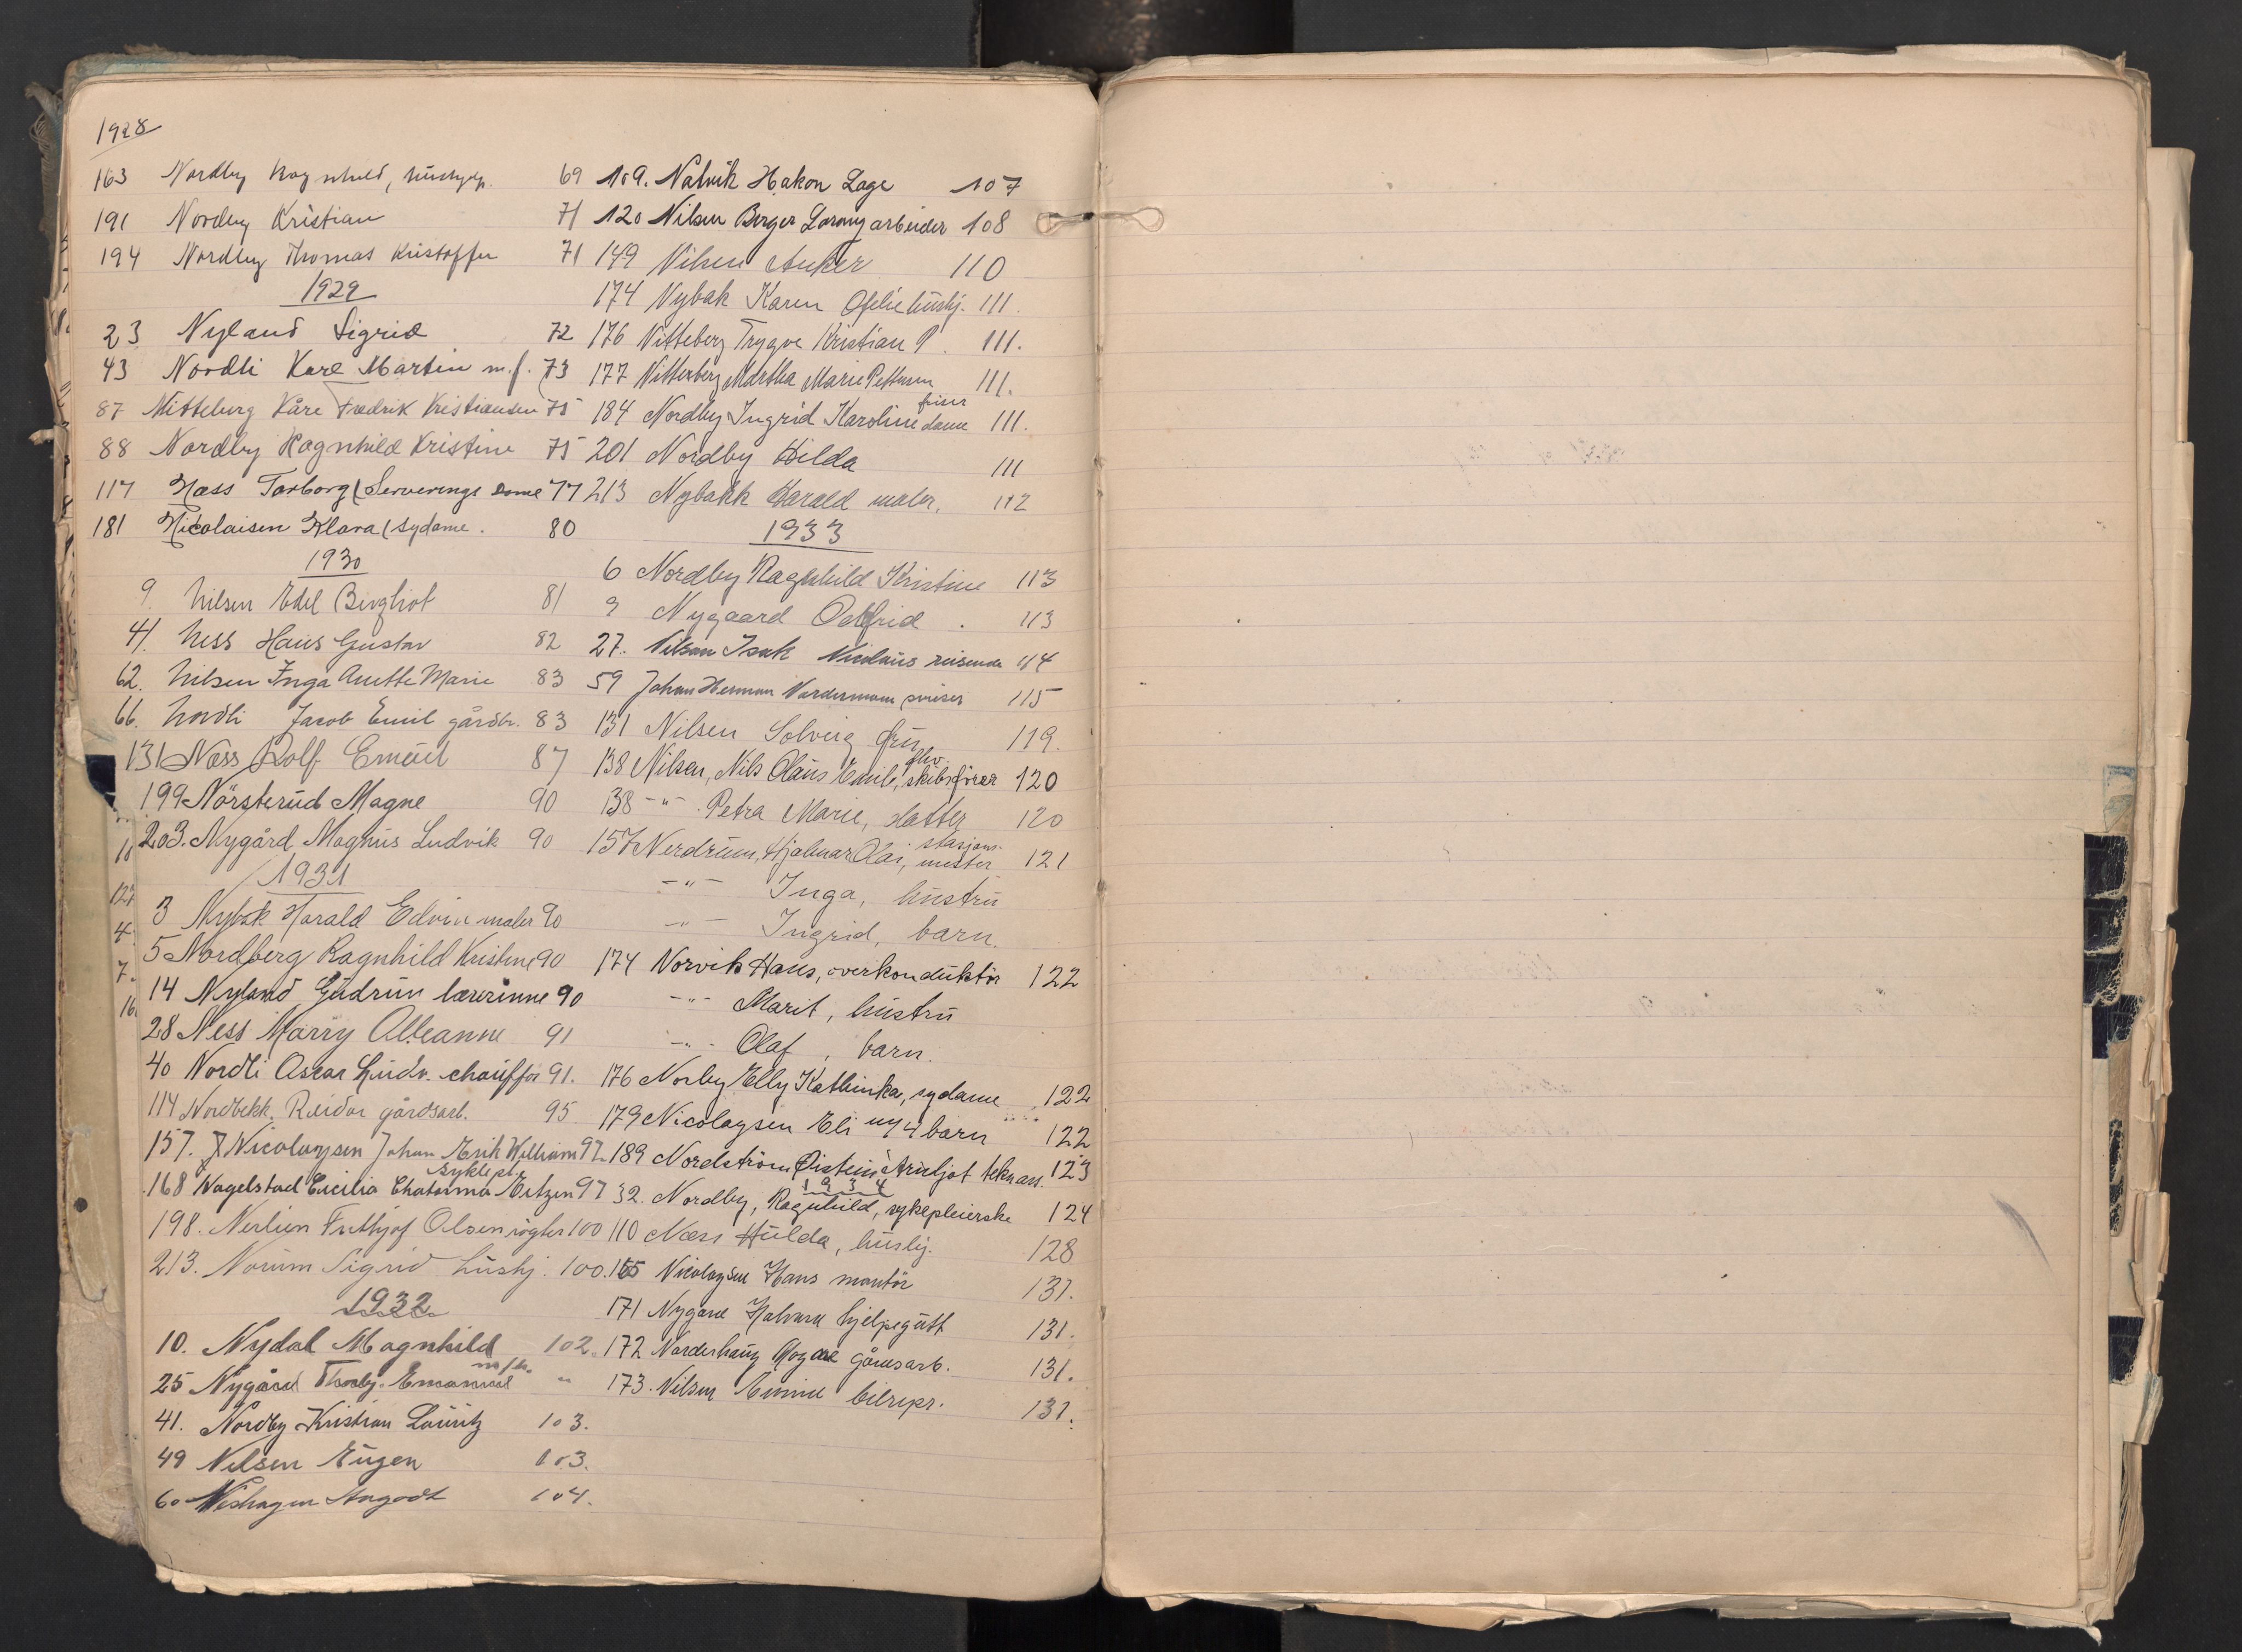 1928
163 Nordby Ragnhild, 69
191 Nordby Kristian 71
194 Nordby Thomas Kristoffer 71
1929
23 Nyland Sigrid 72
43 Nordli Karl Martin m.f. 73
87 Nitteberg Kåre Fredrik Kristiansen 75
88 Nordby Ragnhild Kristine 75
117 Næss Torborg (Serverings dame 77
181 Nicolaisen Klara (sydame. 80
1930
9. Nilsen Edel Bergliot 81
41. Ness Hans Gustav 82
62. Nilsen Inga Anette Marie 83
66. Nordli Jacob Emil gårdbr. 83
131 Næss Rolf 87
199 Nörsterud Magne 90
203. Nygård Magnus Ludvik 90
1931
3 Nybak Harald Edvin maler 90
5 Nordberg Ragnhild Kristine 90
14 Nyland Gudrun lærerinne 90
28 Ness Marry 91
40 Nordli Oscar Ludv. chauffør 91.
114 Nordbekk Reidar gårdsarb. 95
157. Nicolaysen Johan Erik William 97
168 Nagelstad Cecilia Eitzen 97
198. Nerlien Frithjof Olsen røgter 100
213. Norum Sigrid hushj. 100.
1932
10. Nydal Magnhild 102.
25 Nygård Emanuel m/fl. "
41. Nordby Kristian Lauritz 103.
49 Nilsen Eugen 103.
60 104.
109. Nalvik Håkon Lage 107
120 Nilsen Birger arbeider 108
149 Nilsen Anker 110
174 Nybak Karen Ofelie hushj. 111.
176 Nitteberg Trygve Kristian P. 111.
177 Nitterberg Martha Marie Pettersen 111.
184 Nordby Ingrid Karoline friser dame 111.
201 Nordby Hilda 111
213 Nybakk Harald maler. 112
1933
6 Nordby Ragnhild Kristine 113
9 Nygaard 113
27. Nilsen Isak Nicolaus reisende 114
59 Johan Herman Nordermoen 115
131 Nilsen Solveig fru 119.
138 Nilsen, Nils Olaus Emil, skibsfører 120
138 -"- Petra Marie, datter 120
157 Nerdrum, Hjalmar Olai, stasjons- mester 121
-"- Inga, hustru
-"- Ingrid, barn.
174 Norvik Hans, overkonduktör 122
-"- Marit, hustru
-"- Olaf, barn.
176 Norby Elly Kathinka, sydame 122
179 Nicolaysen Eli m/4 barn 122
189 Nordström Öistein Arnljot 123
1934
32. Nordby, Ragnhild, sykepleierske 124
110 Næss Hulda, huslig. 128
165 Nicolaysen Hans montör 131.
171 Nygård Halvard hjelpegutt 131.
172 Norderhaug gårdsarb. 131.
173. Nilsen bilrepr. 131.